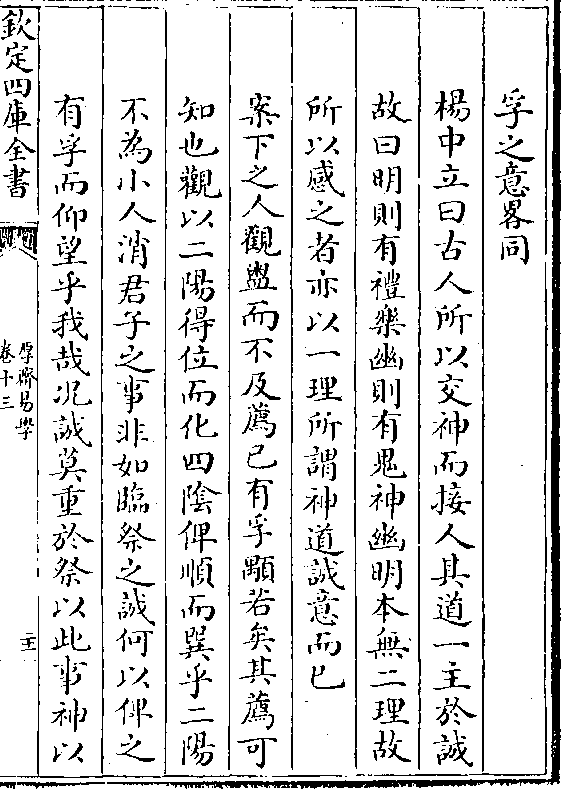 孚之意畧同
楊中立曰古人所以交神而接人其道一主於誠
故曰明則有禮樂幽則有鬼神幽明本無二理故
所以感之者亦以一理所謂神道誠意而已
案下之人觀盥而不及薦已有孚顒若矣其薦可
知也觀以二陽得位而化四陰俾順而巽乎二陽
不為小人消君子之事非如臨祭之誠何以俾之
有孚而仰望乎我哉况誠莫重於祭以此事神以
欽定四庫全書
厚齋易學
卷十三